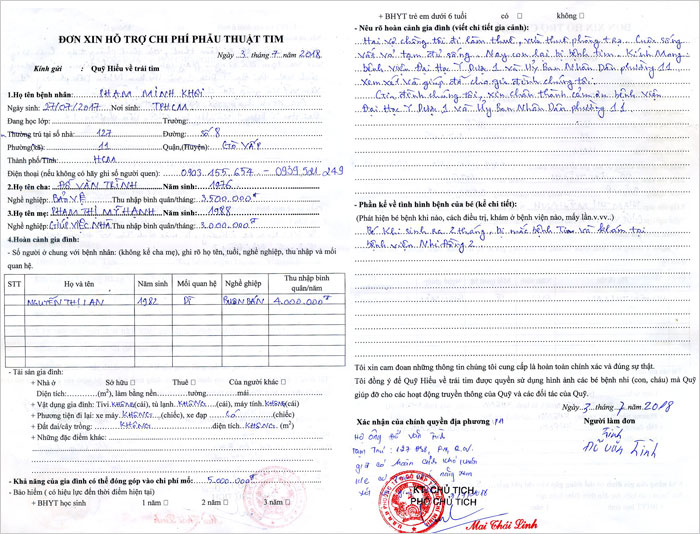 ĐƠN XIN HỖ TRỢ CHI PHÍ PHẪU THUẬT TIM
Ngày 3 tháng 7 năm 2018
Kính gửi : Quỹ Hiểu về trái tim
1.Họ tên bệnh nhân: PHẠM MINH KHÔI
Ngày sinh: 27/07/2017 Nơi sinh: TPHCM
Đang học lớp: Trường:
Thường trú tại số nhà: 127 Đường: số 8
Phường(xã): 11 Quận,(Huyện): GÒ VẤP
Thành phố/Tỉnh: HCM
Điện thoại (nếu không có hãy ghi số người quen): 0903.155.654 -
2.Họ tên cha: ĐỖ VĂN TRÌNH Năm sinh: 1976
Nghề nghiệp: BẢO VỆ Thu nhập bình quân/tháng: 3.500.000đ
3.Họ tên mẹ: PHẠM THỊ MỸ HẠNH Năm sinh: 1988
Nghề nghiệp: GIÚP VIỆC NHÀ Thu nhập bình quân/tháng: 3.000.000đ
4.Hoàn cảnh gia đình:
- Số người ở chung với bệnh nhân: (không kể cha mẹ), ghi rõ họ tên, tuổi, nghề nghiệp, thu nhập và mối
quan hệ.
STT Họ và tên Năm sinh Mối quan hệ Nghề nghiệp Thu nhập bình
quân/năm
NGUYỄN THỊ LAN 1982 DÌ BUÔN BÁN 4.000.000đ
- Tài sản gia đình:
+ Nhà ở Sở hữu □ Thuê □ Của người khác □
Diện tích:(m²), làm bằng nền tường, mái.
+ Vật dụng gia đình: Tivi KHÔNG (cái), tủ lạnh KHÔNG (cái), máy tính KHÔNG (cái)
+ Phương tiện đi lại: xe máy KHÔNG (chiếc), xe đạp CÓ (chiếc)
+ Đất đai/cây trồng: KHÔNG diện tích KHÔNG (m²)
+ Những đặc điểm khác:
- Khả năng của gia đình có thể đóng góp vào chi phí mổ: 5.000.000đ
- Bảo hiểm ( có hiệu lực đến thời điểm hiện tại)
+ BHYT học sinh 1 năm □ 2 năm □ 3 năm □
+ BHYT trẻ em dưới 6 tuổi có □ không □
- Nêu rõ hoàn cảnh gia đình (viết chi tiết gia cảnh):
Hai vợ chồng tôi đi làm thuê, với thuê phòng trọ. Cuộc sống
vất vả tạm đủ sống. Nay con lại bị bệnh tim. Kính Mong
bệnh viện Đại Học Y Dược 1 và Ủy Ban Nhân Dân phường 11
xem xét và giúp đỡ cho gia đình chúng tôi.
Gia đình chúng tôi, xin chân thành cảm ơn bệnh viện
Đại Học Y Dược 1 và Ủy Ban Nhân Dân phường 11.
- Phần kể về tình hình bệnh của bé (kể chi tiết):
(Phát hiện bé bệnh khi nào, cách điều trị, khám ở bệnh viện nào, mấy lần.v.vv..)
Bé khi sinh ra 2 tháng, bị mắc bệnh Tim và khám tại
bệnh viện Nhi Đồng 2
Tôi xin cam đoan những thông tin chúng tôi cung cấp là hoàn toàn chính xác và đúng sự thật.
Tôi đồng ý để Quỹ Hiểu về trái tim được quyền sử dụng hình ảnh các bé bệnh nhi (con, cháu) mà Quỹ
giúp đỡ cho các hoạt động truyền thông của Quỹ và các đối tác của Quỹ.
Ngày 3 tháng 7 năm 2018
Xác nhận của chính quyền địa phương Người làm đơn
Trình
Đỗ Văn Trình
KT. CHỦ TỊCH
PHÓ CHỦ TỊCH
Mai Thái Linh